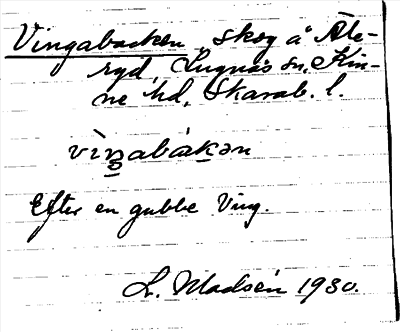 Vingabacken, skog å Åte-
ryd, Lugnås sn, Kin-
ne hd, Skarab. l.
vìŋabàkən
Efter en gubbe Ving.
L. Madsén 1930.